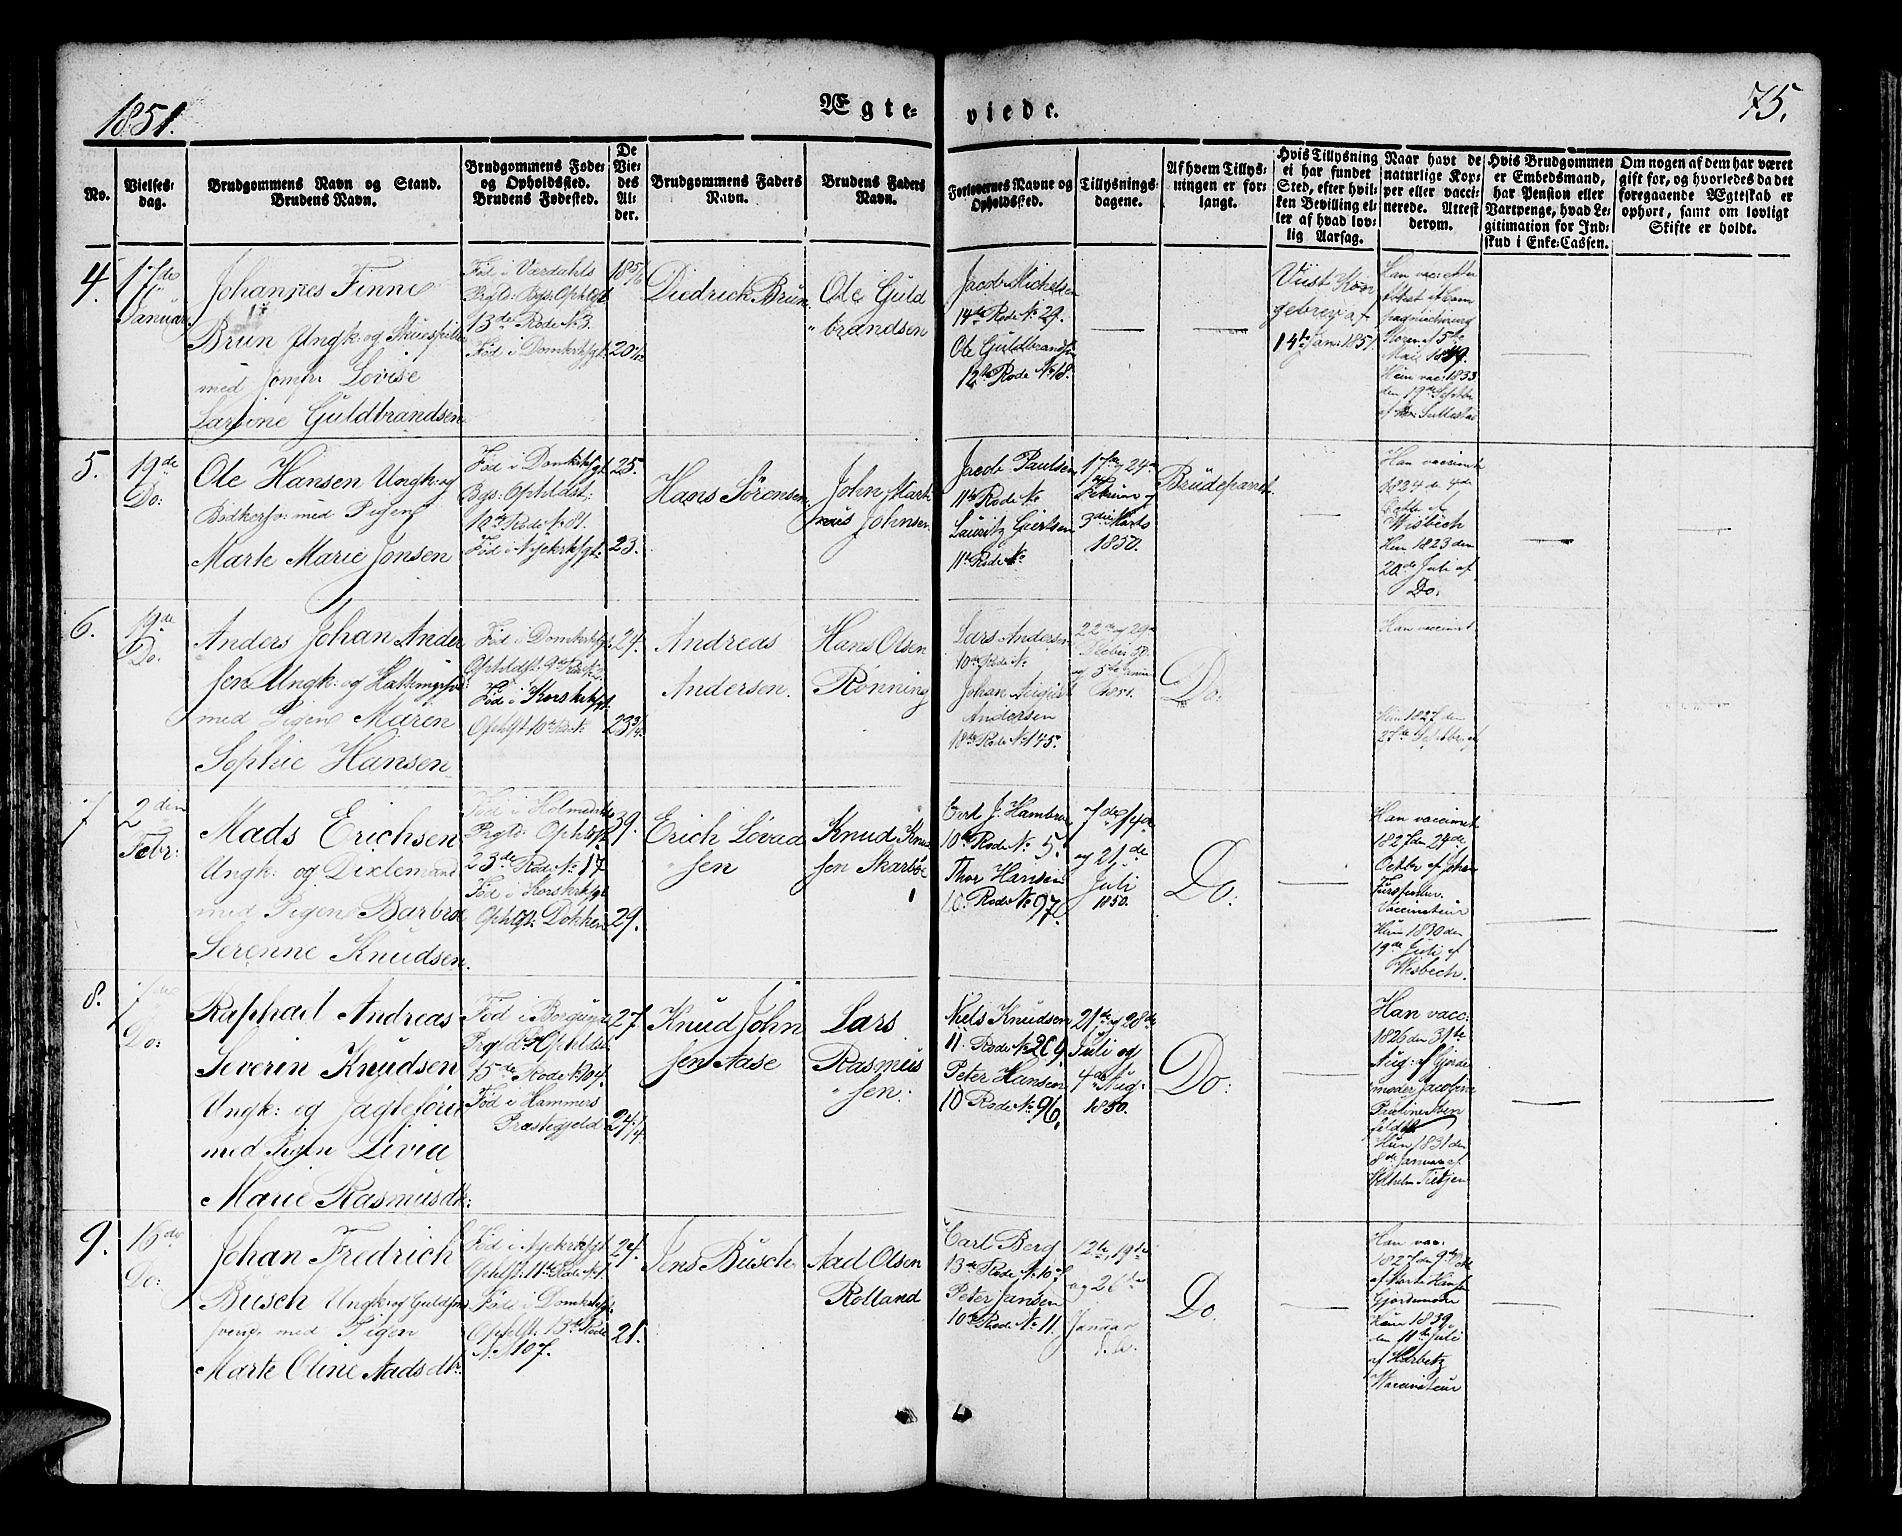 1851.
Ægte-
viede.
75.
No.
Vielses-
dag.
Brudgommens Navn og Stand.
Brudens Navn.
Brudgommens Føde-
og Opholdssted.
Brudens Fødested.
De
Vie-
des
Al-
der.
Brudgommens Faders
Navn.
Brudens Faders
Navn.
Forlovernes Navne og
Opholdssted.
Tillysnings-
dagene.
Af hvem Tillys-
ningen er for-
langt.
Hvis Tillysning
ei har fundet
Sted, efter hvil-
ken Bevilling el-
ler af hvad lov-
lig Aarsag.
Naar havt de
naturlige Kop-
per eller vacci-
nerede. Attest
derom.
Hvis Brudgommen
er Embedsmand,
har Pension eller
Vartpenge, hvad Le-
gitimation for Ind-
skud i Enke-Cassen.
Om nogen af dem har været
gift før, og hvorledes da det
foregaaende Ægteskab er
ophørt, samt om lovligt
Skifte er holdt.
4.
17de
Januar
Johannes Finne
Brun Ungk: og
med Jomfr. Lovise
Larsine Guldbrandsen
Fød i Værdahls
Prgtd: Bys: Ophldst
13de Rode No 3.
Fød i Domkrksgt.
Diedrick Brun
Ole Guld
brandsen
Jacob Michelsen
14de Rode No 29.
Ole Guldbrandsen
12te Rode No 18.
Viist Kon
gebrev af
14de Jan: 1851
5te
Mai 1849.
Hun vac: 1833
den 19de Septbr
5.
19de
Do:
Ole Hansen Ungk: og
Bødkersv: med Pigen
Marte Marie Jonsen
Fød i Domkrksgt.
Bys: Ophldst:
Fød i Nykrksgt.
25.
23.
Hans Sørensen
John Mart
nus Johnsen
Jacob Paulsen
11te Rode No
Lauritz Giertsen
11te Rode No
17de, 24de
Februar og
3die Marts
1850.
Brudeparret.
Han vaccineret
1824 de 4de
Octbr af
Wisbech
Hun 1823 den
20de Juli af
Do.
6.
19de
Do:
Anders Johan Ander
sen Ungk: og
med Pigen Maren
Sophie Hansen
Fød i Domkrksgt.
Fød i Korskrksgt.
24.
23¾.
Andreas
Andersen.
Hans Olsen
Rønning
Lars Andersen
10de Rode No
Johan August
Andersen
18de Rode No 145.
22de og 29de
og 5te Januar
1851.
Do:
Han vaccineret
Hun 1827 den
27de Septbr af
7
2den
Febr:
Mads Erichsen
Ungk: og
med Pigen Barbro
Serenne Knudsen.
Prgtd: Ophldst
23de Rode No 17
Fød i Korskrksgt
Ophldst: Dokken
39.
29.
Erich Lovad
sen
Knud Knud
sen Skarbøe
10de Rode No 5.
Thor Hansen
10. Rode No 97.
7de, 14de
og 21de
Juli
1850.
Do:
Han vaccineret
1827 den 24de
Octbr af Johan
Vaccinateur
Hun 1830 den
19de Juli af
Wisbech.
8.
Do:
Raphael Andreas
Severin Knudsen
Ungk: og
med Pigen Livia
Marie Rasmusdtr:
15de Rode No 104.
Fød i Hammers
Præstegjeld
27.
24¼.
Knud John
sen Aase
Lars
Rasmus
sen.
Niels Knudsen
11. Rode No 209.
Peter Hansen
10 Rode No 96.
21de og 28de
Juli og
4de Aug:
1850.
Do:
Han vacc:
1826 den 31te
Aug: af Gjorde
moder Jacobine
Pauline
Hun 1831 den
8de Januar af
Wilhelm Tietjen
9.
16de
Do:
Johan Fredrich
Busch Ungk: og Guldsm
svend med Pigen
Marte Oline Aadsdtr:
Fød i Nykrksgt.
Ophldst: 11te Rode No 1.
Fød i Domkrksgt:
Ophldst: 13de Rode
No 107.
24.
21.
Jens Busch.
Aad Olsen
Rolland
Carl Berg
13de Rode No 107
Peter Jansen
10de Rode No 11.
12te, 19de
og 26de
Januar
Do.
Han vac:
1827 den 9de
Gjordemoder
Hun 1839
den 11te Juli
af Harbitz
Vaccinateur